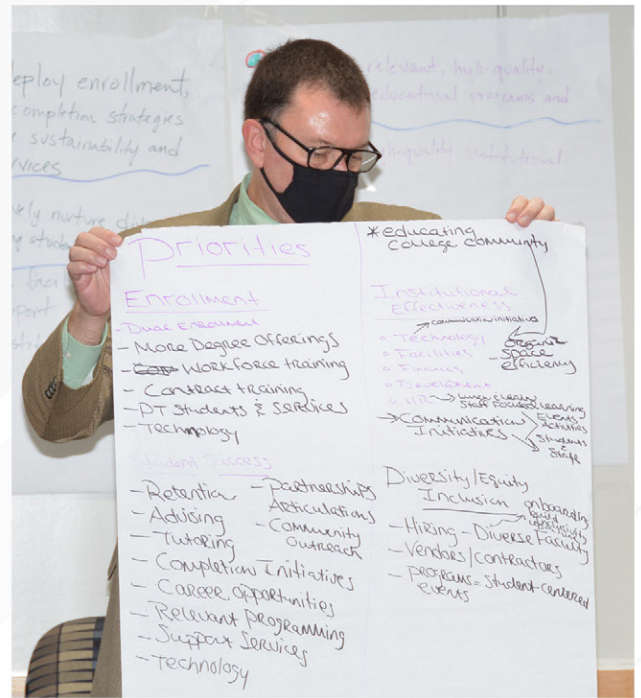 eploy enrollment,
completion strategies
sustainability and
relevant, high-quality,
educational programs and
institutional
Priorities
Enrollment
-Dual Enrollment
- More Degree Offerings
- Workforce training
- Contract training
- PT Students & Services
- Technology
Student Success
- Retention
- Advising
- Tutoring
- Completion Initiatives
- Career opportunities
- Relevant programming
- Support Services
- Technology
- Partnerships
Articulations
- Community
Outreach
* educating
College community
Institutional
Effectiveness
communication initiatives
Technology
Facilities
Finances
Development
HR
space
efficiency
Staff Focused Learning
Events
Activities
Communication
Initiatives
Students
&
Staff
Diversity/Equity
Inclusion
onboarding
- Hiring - Diverse Faculty
- Vendors/contractors
- programs = student-centered
events